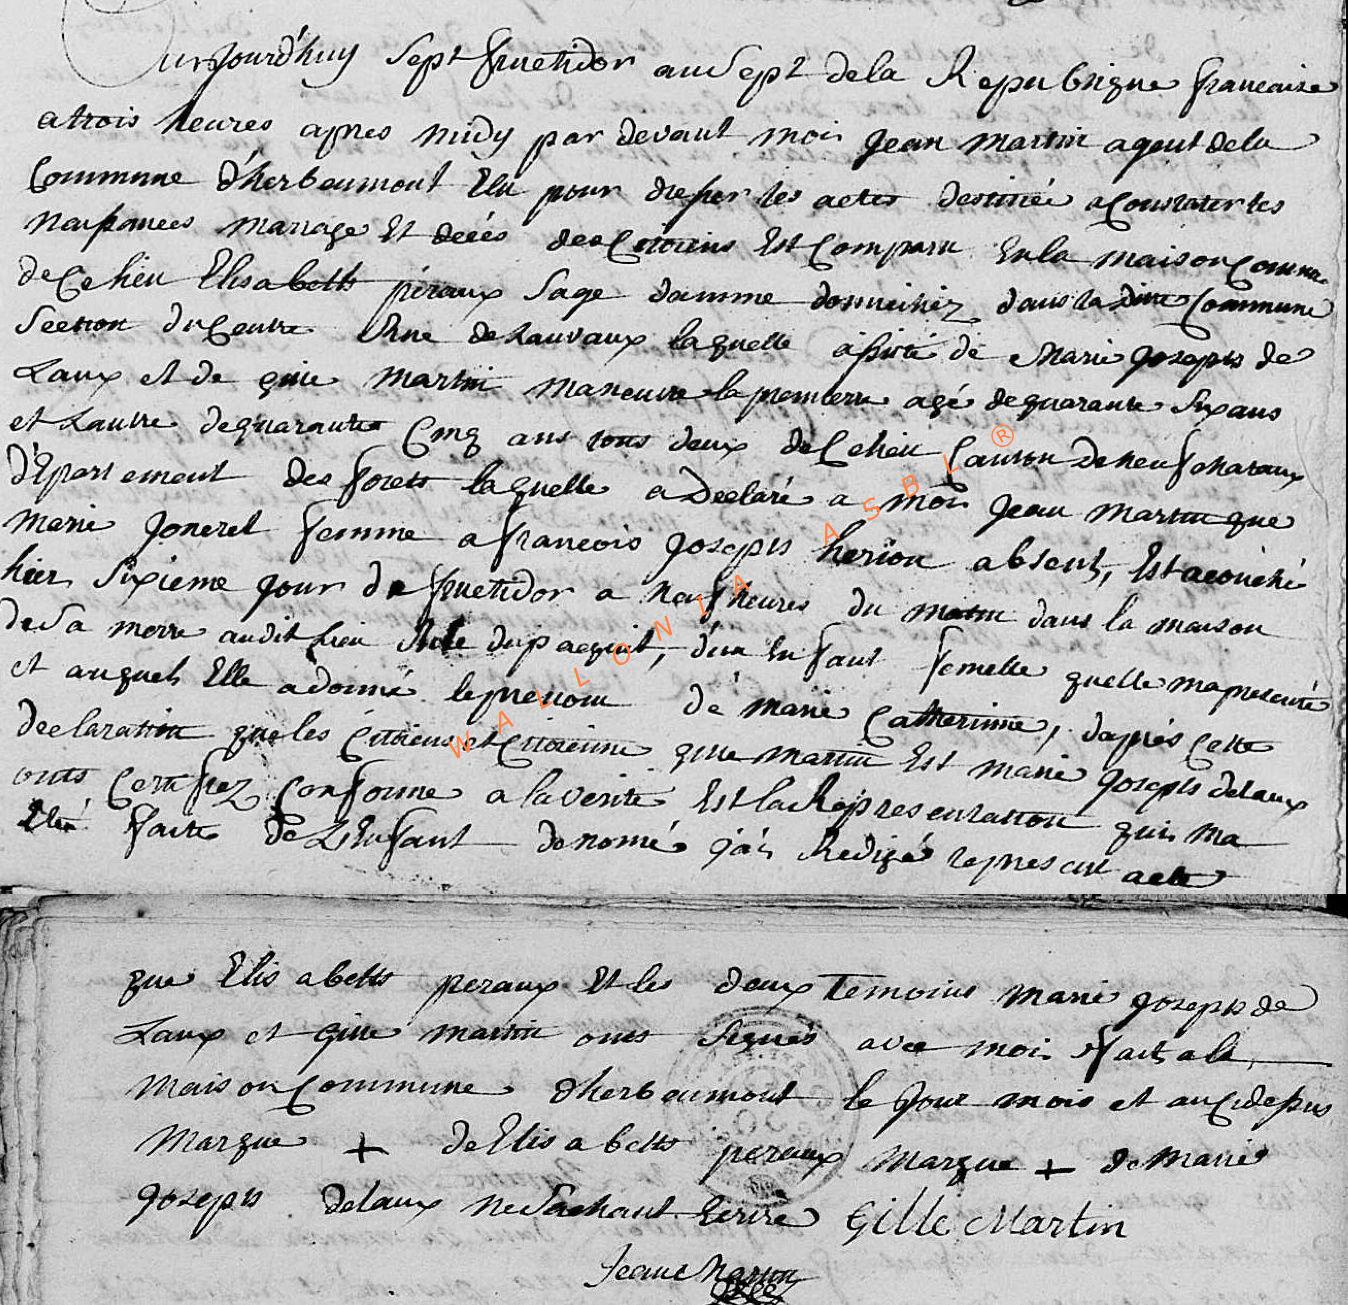 aujourd'huy Sept fruetidor an Sept de la Republique francaise
a trois heures apres midy par devant moi Jean Martin agent de la
Commune d'herbeumont Elu pour dresser les actes destinéé a Constater les
Naissances mariage Et décés des Citoiens Est Comparu En la maison Commune
de Ce lieu Elisabeth péraux Sage damme domiciliez dans la dite Commune
Section du Centre Rue de Lauvaux laquelle assisté de Marie Joseph de
Laux et de gille Martin maneuvre la premierre agé de quarante Six ans
et Lautre de quarante Cinq ans tous deux de Ce lieu Canton de neufchataux
d'Epartement des forets laquelle a Declaré a moi Jean Martin que
Marie Joneret femme a francois Joseph herion absent, Est acouché
hier Sixieme jour de fruetidor a neuf heures du matin dans la maison
de Sa merre audit Lieu Rue du paquit, d'un Enfant femelle quelle ma presenté
et auquels Elle a donné le prenom de marie Catherinne, dapres Cette
declaration que les Citoiens et Citoienne gille martin Est marie Joseph delaux
onts Certifiez Conforme a la verité Est la Representation qui ma
Eté faite de L'Enfant denomé j'ai Redigé le present acte
que Elisabeth peraux Et les deux Temoins marie Joseph de
Laux et gille martin onts Signés avec moi fait a la
maison Commune d'herbeumont le Jour mois et an Cidessus
marque + de Elisabeth peraux marque + de Marie
Joseph delaux ne Sachant Ecrire Gille Martin
Jean Martin
WALLONIA ASBL ®